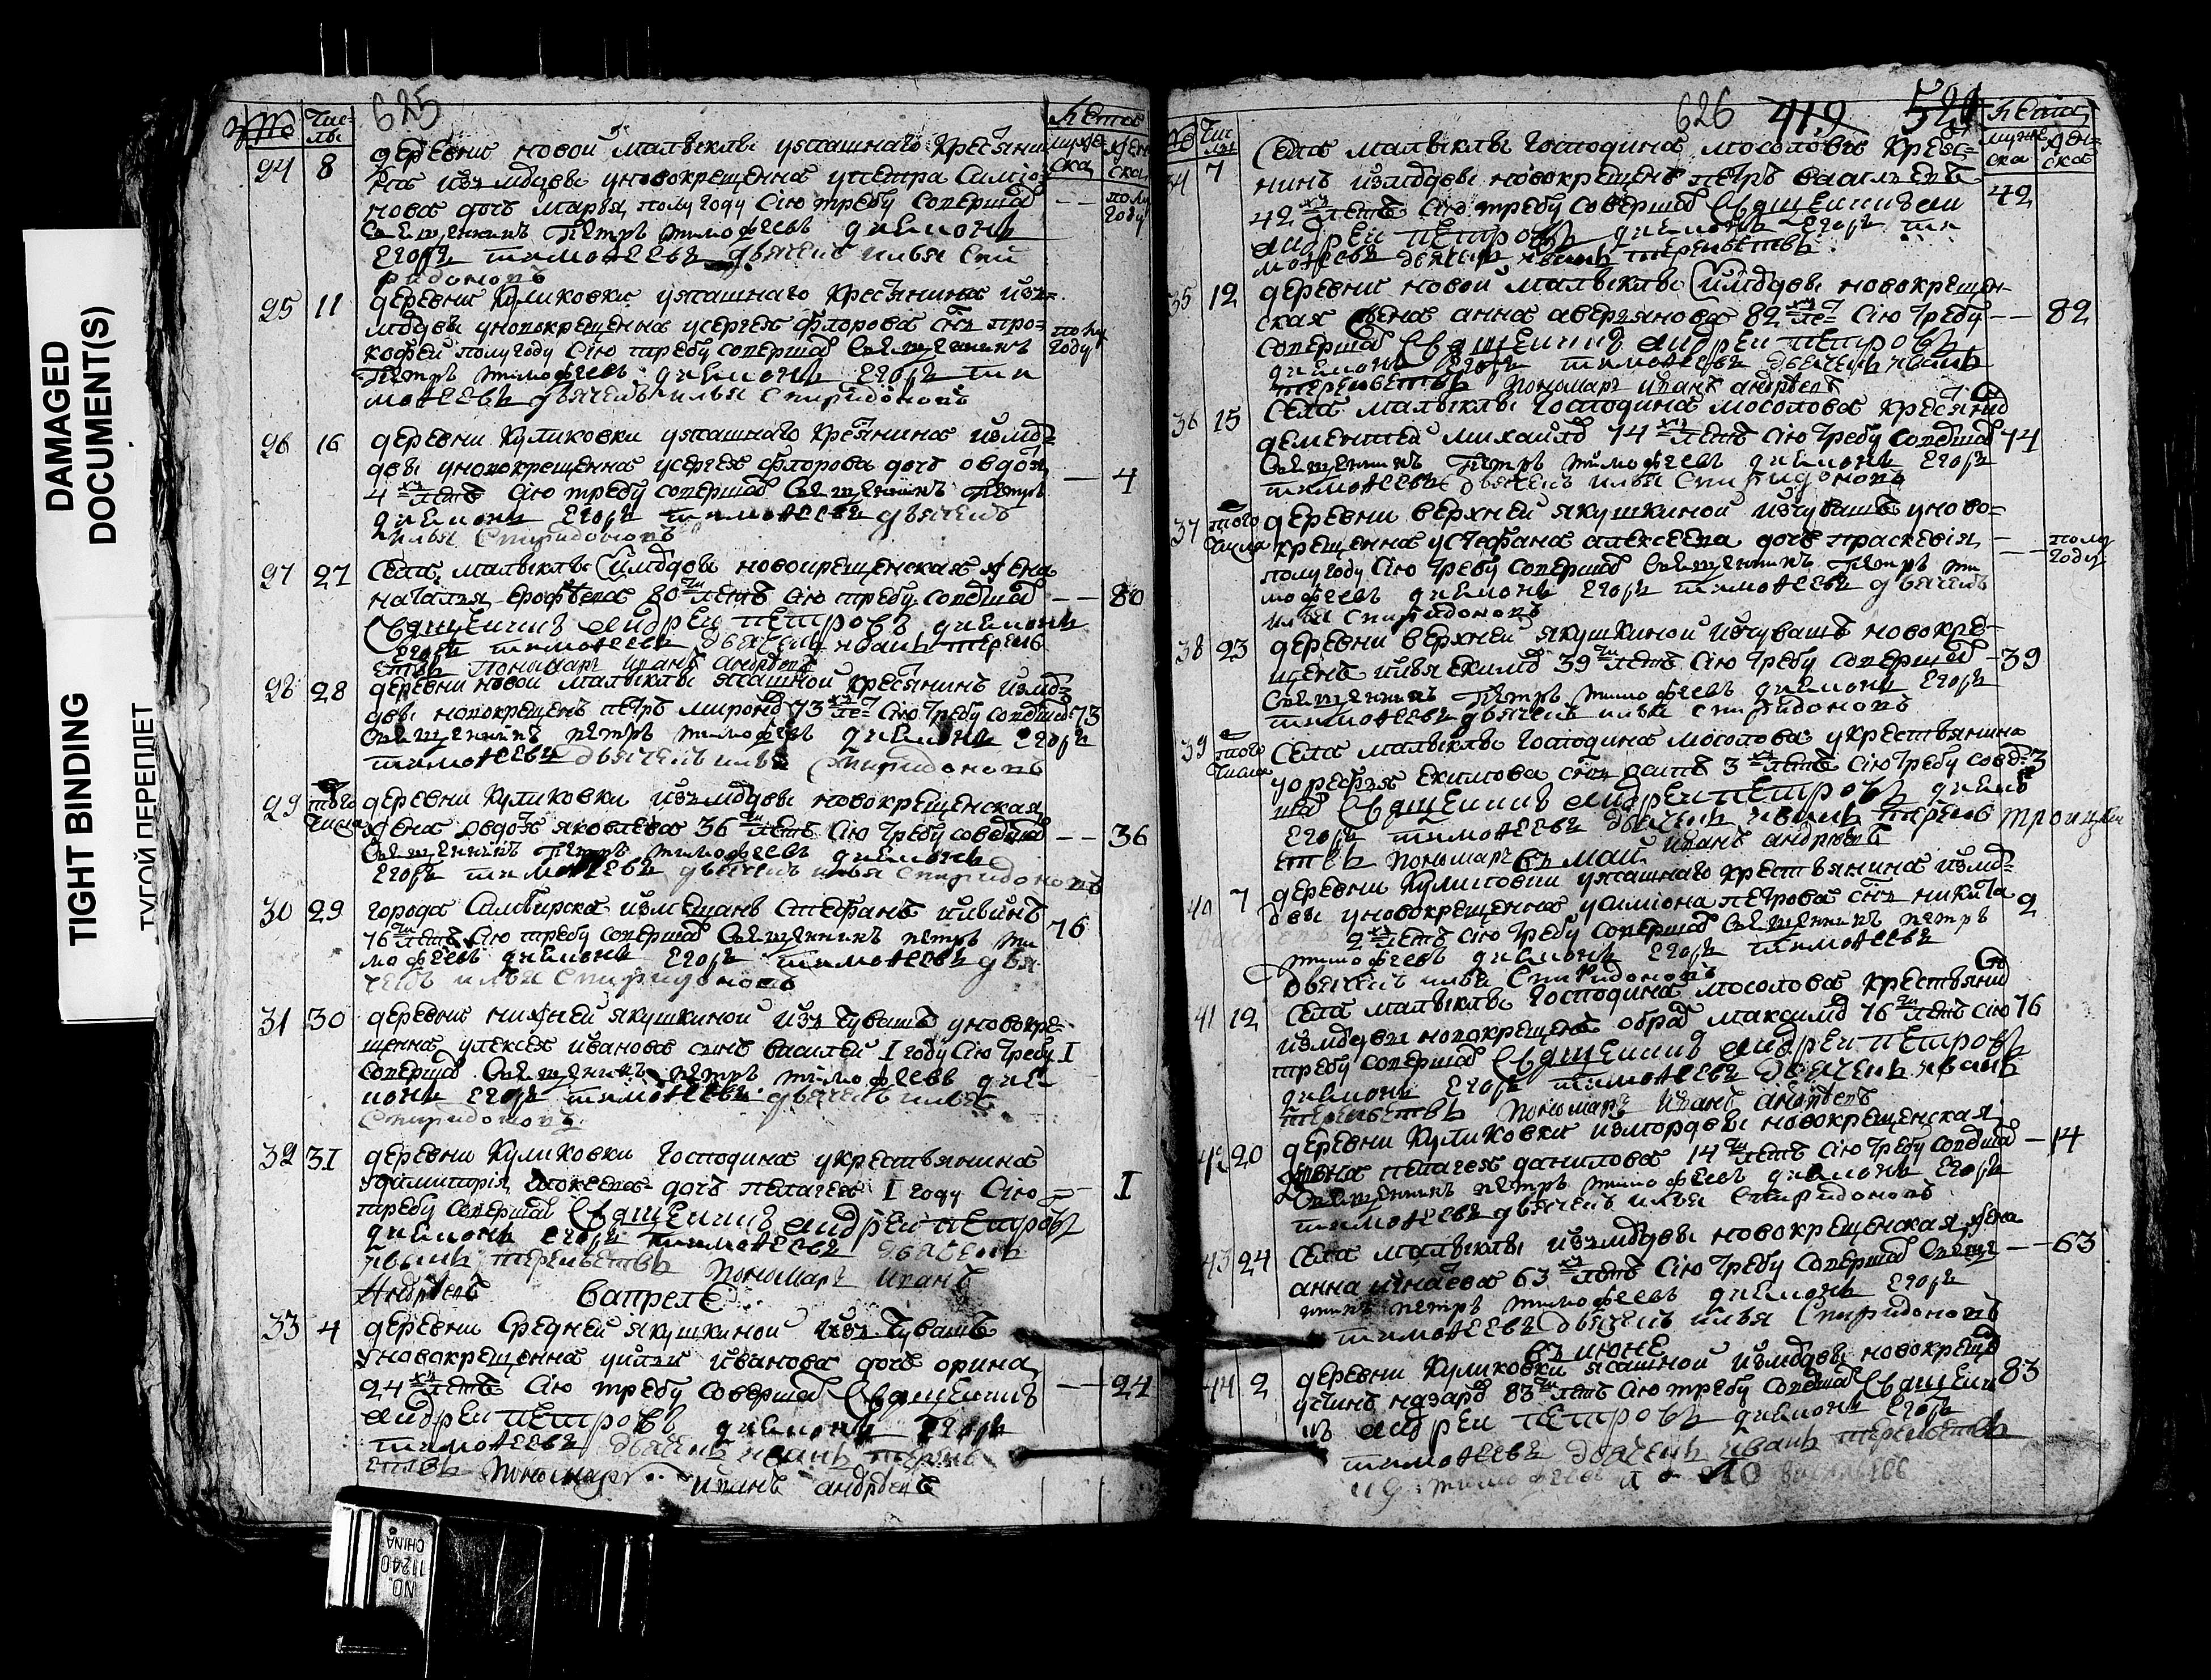 DAMAGED
DOCUMENT(S)
TIGHT BINDING
ТУГОЙ ПЕРЕПЛЕТ
625
№ Чис-
лы
Лета
муже
ска
жен
ска
24 8 деревни новой малыклы уясашнаго крестьяни
на изъ мордвы уновокрещенна упетра симіо-
нова дочь марья полугоду сію требу совершал — полу
году
Священникъ Петръ тимофеевъ диаконъ
Егоръ тимофеевъ дьячекъ илья спи
ридоновъ
25 11 деревни Куликовки уясашнаго крестьянина изъ
мордвы уновокрещенна усергея флорова сынъ про-
кофей полугоду сію требу совершал Священникъ полу
году
Петръ тимофеевъ диаконъ Егоръ ти
мофеевъ дьячекъ илья спиридоновъ
26 16 деревни Куликовки уясашнаго крестьянина измор-
двы уновокрещенна усергея флорова дочь овдотя
4 хъ летъ сію требу совершал Священникъ Петръ — 4
диаконъ Егоръ тимофеевъ дьячекъ
илья Спиридоновъ
27 27 Села малыклы измордвы новокрещенская жена
наталья ерофеева 80 ти летъ сію требу совершал — 80
Священникъ андреи петровъ диаконъ
Егоръ тимофеевъ дьячекъ иванъ терень
етевъ пономарь иванъ андреевъ
28 28 деревни новой малыклы ясашной крестьянинъ измор-
двы новокрещенъ петръ миронов 73 хъ ле- сію требу совершал 73
Священникъ петръ тимофеевъ диаконъ Егоръ
тимофеевъ дьячекъ илья Спиридоновъ
29 того
числа
деревни Куликовки изъ мордвы новокрещенская
жена овдотя яковлева 36 ти летъ сію требу совершал — 36
Священникъ Петръ тимофеевъ диаконъ
Егоръ тимофеевъ дьячекъ илья спиридоновъ
30 29 города Симбирска измещанъ Стефанъ ильинъ
76 ти летъ сію требу совершал Священникъ петръ ти 76
мофеевъ диаконъ Егоръ тимофеевъ дья
чекъ илья спиридоновъ
31 30 деревни нижней якушкиной изъ чувашъ уновокре-
щенна улексея иванова сынъ василей I году сію требу I
совершал Священникъ петръ тимофеевъ диа
конъ Егоръ тимофеевъ дьячекъ илья
Спиридоновъ
32 31 деревни Куликовки господина укрестьянина
дочь пелагея I году сію — I
требу совершал Священникъ андреи петровъ
диаконъ Егоръ тимофеевъ дьячекъ
иванъ терентьевъ пономарь иванъ
Андреевъ
вапреле
33 4 деревни Средней якушкиной изъ чувашъ
уновокрещенна уильи иванова дочь орина
24 хъ летъ сію требу совершал Священникъ — 24
андреи петровъ диаконъ Егоръ
тимофеевъ дьячекъ иванъ терень
етевъ пономарь иванъ андреевъ
626 419 521
№ Чис
лы
Лета
муже
ска
жен-
ска
34 7 Села малыклы господина мосолова крестья-
нинъ измордвы новокрещенъ петръ василъевъ
42 хъ летъ сію требу совершал Священникъ 42
андреи петровъ диаконъ Егоръ ти
мофеевъ дьячекъ иванъ терентьевъ
35 12 деревни новой малыклы измордвы новокрещен-
ская жена анна аверьянова 82 хъ ле- сію требу — 82
совершал Священникъ андреи петровъ
диаконъ Егоръ тимофеевъ дьячекъ иванъ
терентьевъ пономарь иванъ андреевъ
36 15 Села малыклы господина мосолова крестьянинъ
дементей михайлов 74 хъ летъ сію требу совершал 74
Священникъ Петръ тимофеевъ диаконъ Егоръ
тимофеевъ дьячекъ илья Спиридоновъ
37 того
числа
деревни верхней якушкиной изчувашъ уново-
крещенна устефана алексеева дочь праскевія — полу
году
полугоду сію требу совершал Священникъ Петръ ти
мофеевъ диаконъ Егоръ тимофеевъ дьячекъ
илья Спиридоновъ
38 23 деревни верхней якушкиной изчувашъ новокре-
щенъ илья екимов 39 ти летъ сію требу совершал 39
Священникъ Петръ тимофеевъ диаконъ Егоръ
тимофеевъ дьячекъ илья спиридоновъ
39 того
числа
Села малыклы господина мосолова укрестьянина
уорефья екимова сынъ 3 хъ летъ сію требу совер- 3
шал Священникъ андреи петровъ диаконъ
Егоръ тимофеевъ дьячекъ иванъ терень троицки
етевъ пономарь иванъ андреевъ
въ маи
40 7 деревни Куликовки уясашнаго крестьянина измор-
двы уновокрещенна усимиона петрова сынъ никита 2
2 хъ летъ сію требу совершал Священникъ петръ
тимофеевъ диаконъ Егоръ тимофеевъ
дьячекъ илья Спиридоновъ
41 12 Села малыклы господина мосолова крестьянинъ
измордвы новокрещенъ максимов 76 ти летъ сію 76
требу совершал Священникъ андреи петровъ
диаконъ Егоръ тимофеевъ дьячекъ иванъ
терентьевъ пономарь иванъ андреевъ
42 20 деревни Куликовки измордвы новокрещенская
жена пелагея данилова 14 ти летъ сію требу совершал — 14
Священникъ петръ тимофеевъ диаконъ Егоръ
тимофеевъ дьячекъ илья Спиридоновъ
43 24 Села малыклы изъ мордвы новокрещенская жена
анна 63 хъ летъ сію требу совершал Священ — 63
никъ петръ тимофеевъ диаконъ Егоръ
тимофеевъ дьячекъ илья Спиридоновъ
въ июне
44 2 деревни Куликовки ясашной измордвы новокрещен
устинъ назаров 83 ти летъ сію требу совершал Священни 83
къ андреи петровъ диаконъ Егоръ
тимофеевъ дьячекъ иванъ терентьевъ
NO.
11240
CHINA